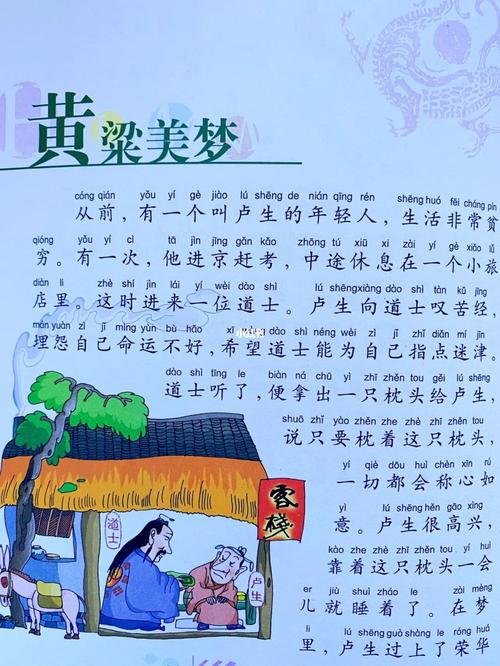 黄粱美梦
cóng qián yǒu yí gè jiào lú shēng de nián qīng rén shēng huó fēi cháng pín
从前，有一个叫卢生的年轻人，生活非常贫
qióng yǒu yí cì tā jìn jīng gǎn kǎo zhōng tú xiū xi zài yí gè xiǎo lǚ
穷。有一次，他进京赶考，中途休息在一个小旅
diàn li zhè shí jìn lái yí wèi dào shì lú shēng xiàng dào shì tàn kǔ jīng
店里。这时进来一位道士。卢生向道士叹苦经，
mán yuàn zì jǐ mìng yùn bù hǎo xī dào shì néng wèi zì jǐ zhǐ diǎn mí jīn
埋怨自己命运不好，希望道士能为自己指点迷津。
dào shì tīng le biàn ná chū yì zhī zhěn tou gěi lú shēng
道士听了，便拿出一只枕头给卢生，
shuō zhǐ yào zhěn zhe zhè zhī zhěn tou
说只要枕着这只枕头，
yí qiè dōu huì chèn xīn rú
一切都会称心如
yì lú shēng hěn gāo xìng
意。卢生很高兴，
kào zhe zhè zhī zhěn tou yí huì
靠着这只枕头一会
er jiù shuì zháo le zài mèng
儿就睡着了。在梦
lǐ lú shēng guò shàng le róng huá
里，卢生过上了荣华
客栈
道士
卢生